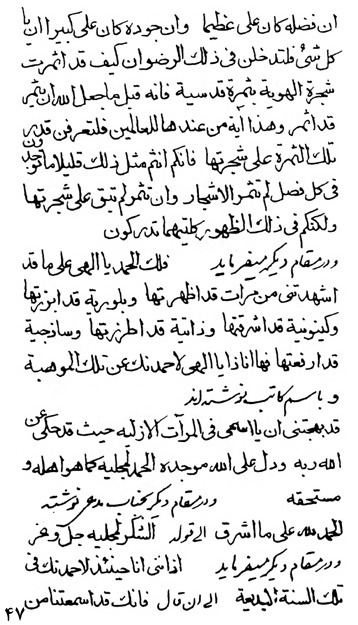 ان فضله كان على عظيما وان جوده كان على كبيرا ان يا
كل شئ فلتدخلن فى ذلك الرضوان كيف قد اثمرت
شجرة الهوية بثمرة قدسية فانه قبل ما جعل الله ان يثمر
قد اثمر وهذا آية من عندها للعالمين فلتعرفن قدر
تلك الثمرة على شجرتها فانكم انتم مثل ذلك قليلا ما توجدون
فى كل فصل لم تثمر الاشجار وان تثمر لم يبق على شجرتها
ولكنكم فى ذلك الظهور كليتهما تدركون
ودر مقام ديكر ميفرمايد فلك الحمد يا الهى على ما قد
اشهدتنى من جرات قد اظهرتها وبلورية قد ابرزتها
وكينونية قد اشرقتها وذاتية قد اطرزتها وساذجية
قد ارفعتها فها انا ذا يا الهى لاحمدنك عن تلك الموهبة
و باسم كاتب نوشته اند
قد بهجتنى ان يا اسمى فى المرآت الازليه حيث قد حكى عن
الله ربه ودل على الله موجده الحمد لمجليه كما هو اهله و
مستحقه ودر مقام ديكر بجناب مدعى نوشته
الحمد لله على ما اشرق الى قوله الشكر لمجليه جل وعز
ودر مقام ديكر ميفرمايد اذ اننى انا حينئذ لاحمدنك فى
تلك السنة البديعة الى ان قال فانك قد اسمعتنا من
٤٧